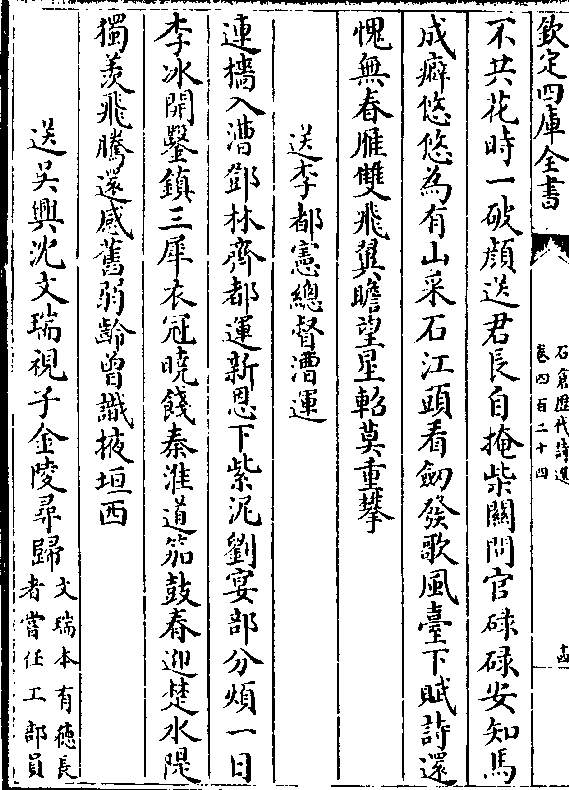 欽定四庫全書
石倉歴代詩選
卷四百二十四
不共花時一破顔送君長自掩柴關問官碌碌安知馬
成癖悠悠為有山采石江頭看劒發歌風臺下賦詩還
愧無春雁雙飛翼瞻望星軺莫重攀
送李都憲總督漕運
連檣入漕鄧林齊都運新恩下紫泥劉宴部分煩一日
李冰開鑿鎮三犀衣冠曉餞秦淮道笳鼓春迎楚水隄
獨羨飛騰還感舊弱齡曾識掖垣西
送吳興沈文瑞視子金陵尋歸
文瑞本有徳長
者嘗任工部員